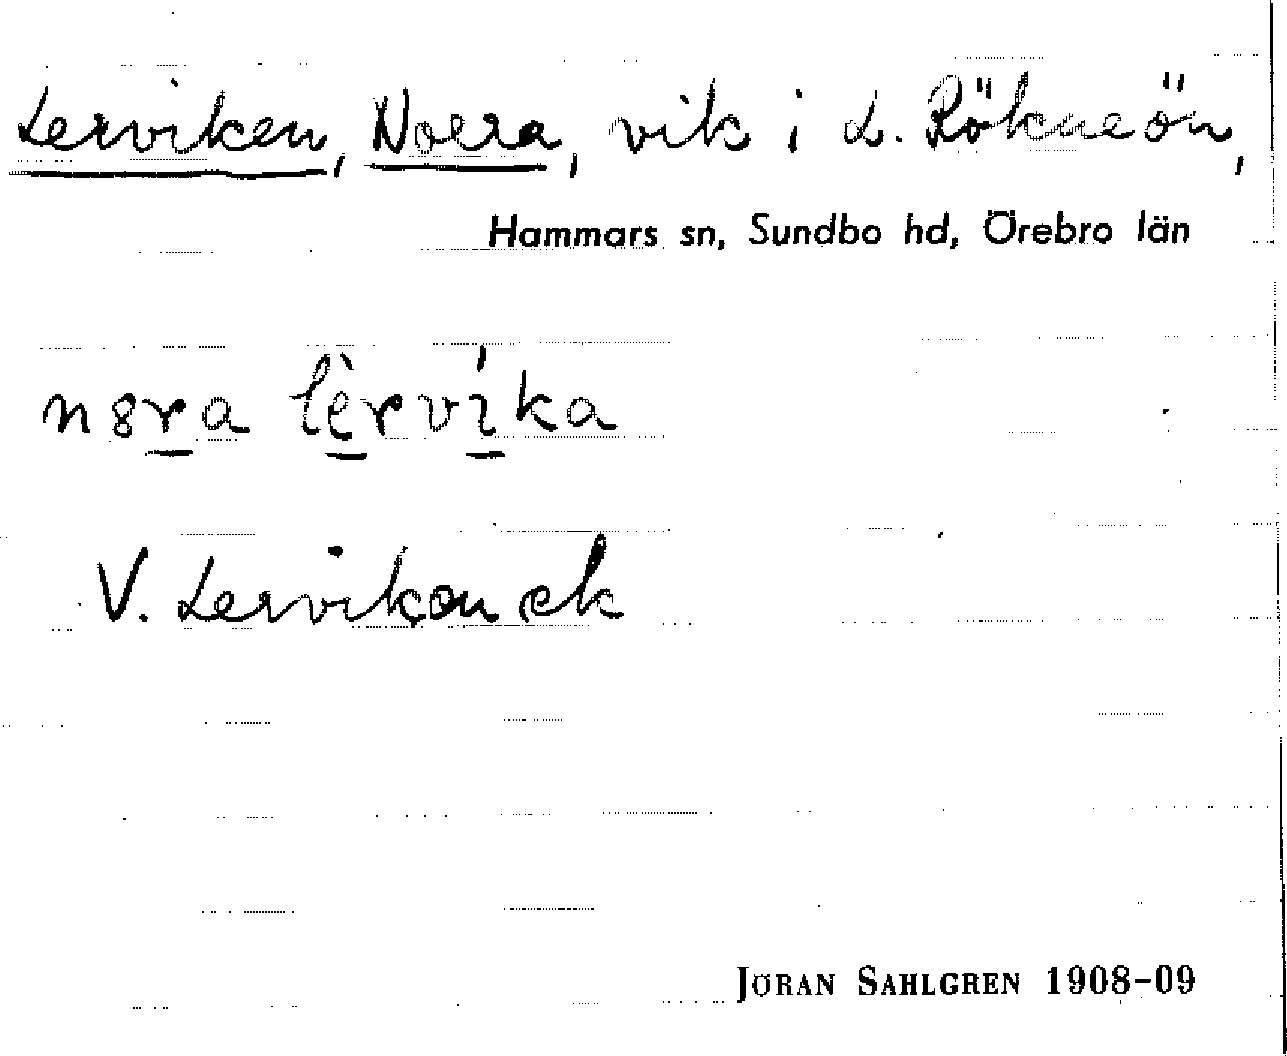 Lerviken, Norra, vik i L. Rökneön,
Hammars sn, Sundbo hd, Örebro län
n8ra lèrvíka
V. Lervikon ek
JÖRAN SAHLGREN 1908-09